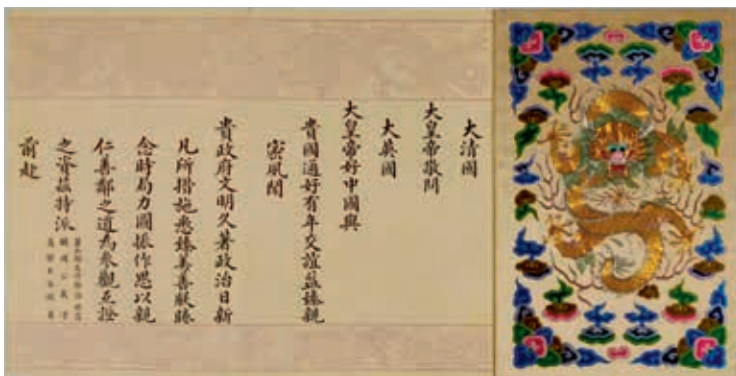 大清國
大皇帝敬問
大英國
大皇帝好中國與
貴國通好有年交誼益臻親
密夙聞
貴政府文明久著政治日新
凡所措施悉臻美善朕眷
念時局力圖振作思以親
仁善鄰之道為參觀互證
之資茲特派
前赴